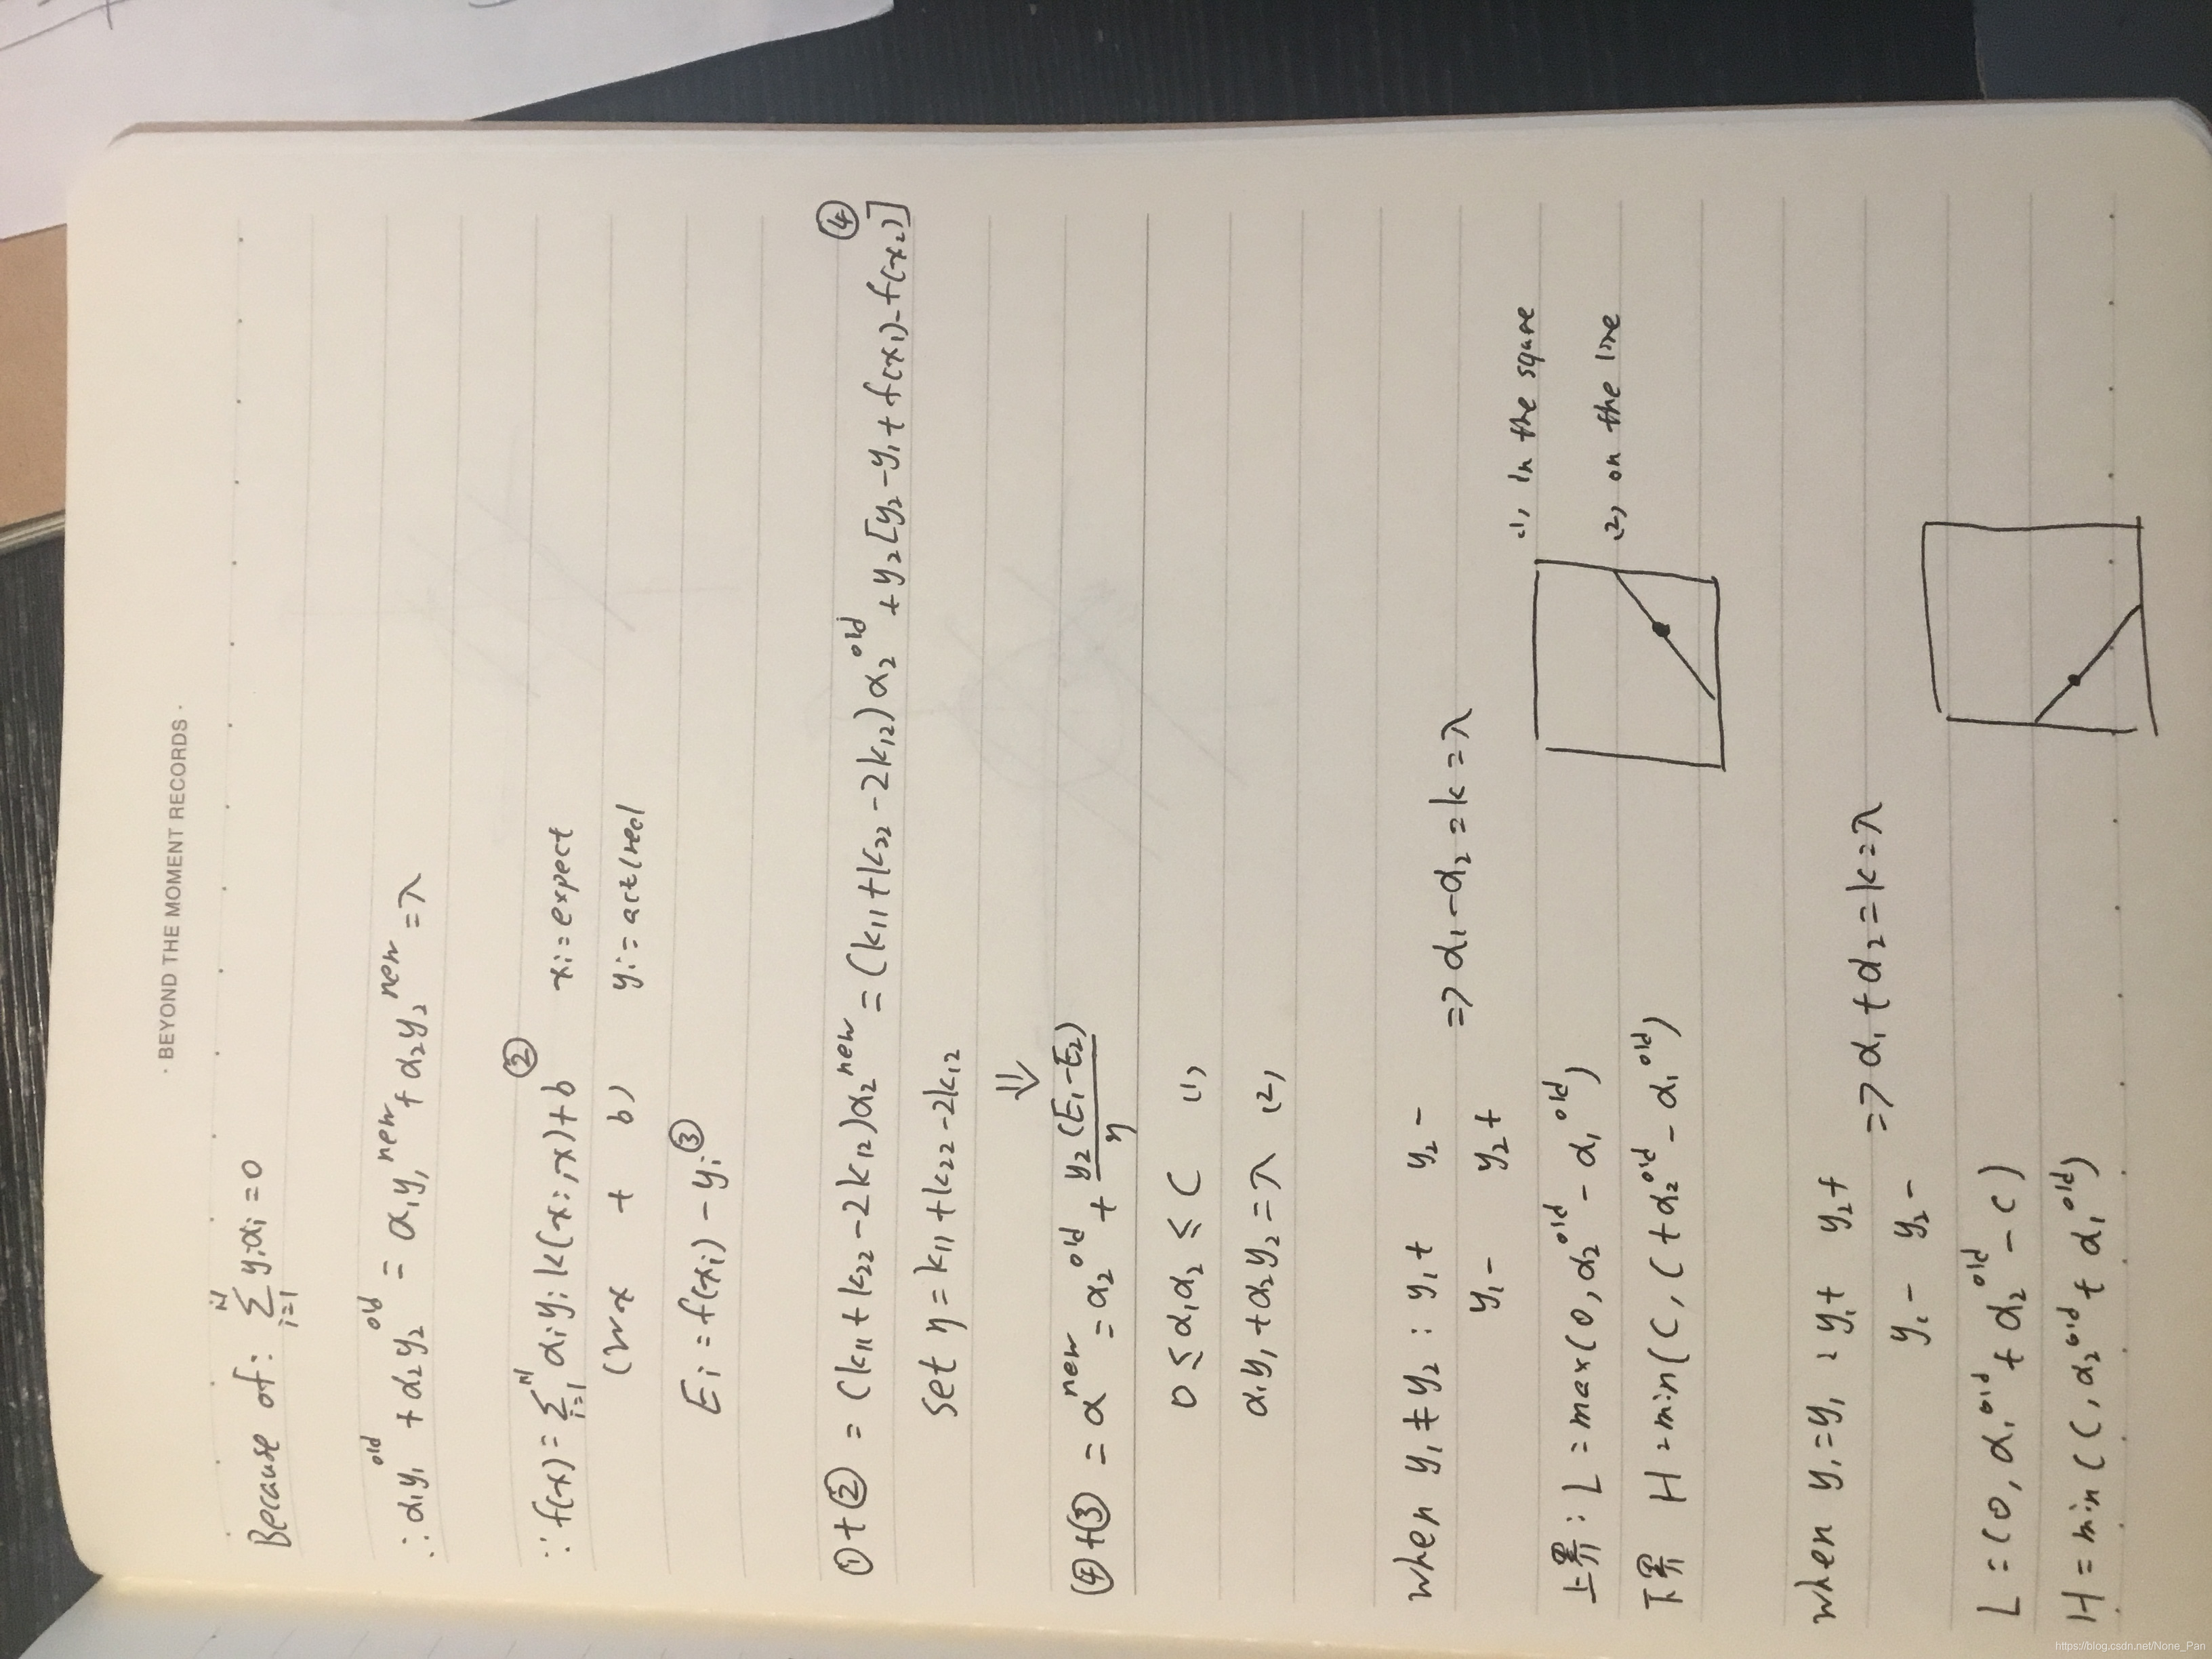 · BEYOND THE MOMENT RECORDS ·
Because of: ∑_{i=1}^{N} yiαi = 0
∴ α1y1^old + α2y2^old = α1y1^new + α2y2^new = λ
∵ f(x) = ∑_{i=1}^{N} αiyik(xi,x)+b ② xi = expect
(wx + b) yi = act(real
Ei = f(xi) - yi ③
①+② = (k11+k22-2k12)α2^new = (k11+k22-2k12)α2^old + y2[y2-y1+f(x1)-f(x2)] ④
Set η = k11+k22-2k12
⇓
④+③ = α^new = α2^old + y2(E1-E2)/η
0 ≤ α1α2 ≤ C (1)
α1y1+α2y2=λ (2)
when y1≠y2 : y1+ y2-
y1- y2+ => α1-α2=k=λ
(1) In the square
上界: L=max(0, α2^old - α1^old)
(2) on the line
下界 H=min(C, C+α2^old - α1^old)
when y1=y1 : y1+ y2+
y1- y2- => α1+α2=k=λ
L=(0, α1^old + α2^old - C)
H=min(C, α2^old + α1^old)
https://blog.csdn.net/None_Pan